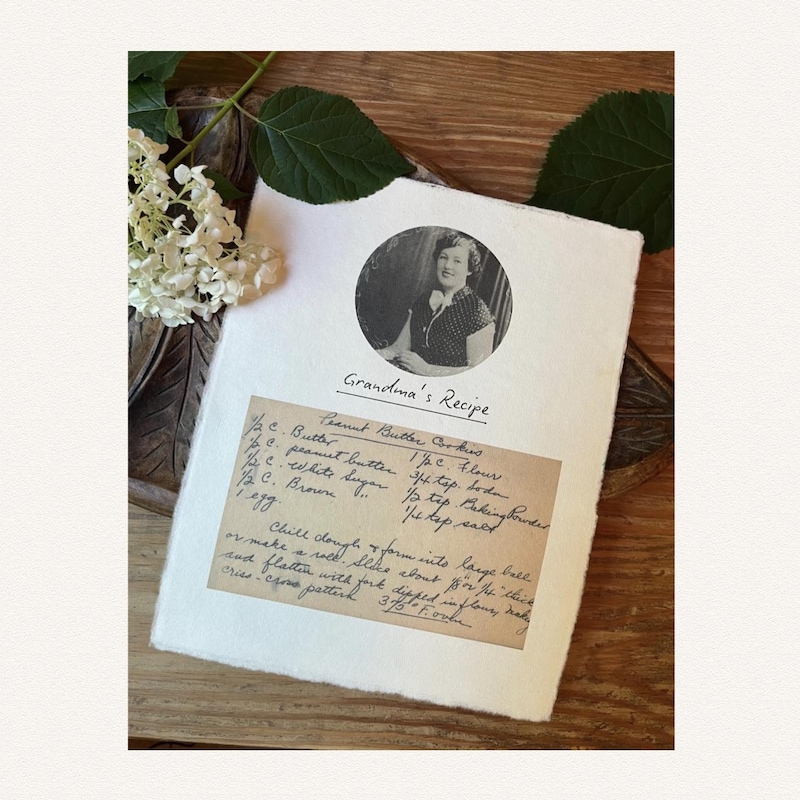 Grandma's Recipe
Peanut Butter Cookies
1/2 C. Butter
1/2 C. peanut butter
1/2 C. White Sugar
1/2 C. Brown "
1 egg.
1 1/2 C. Flour
3/4 tsp. Soda
1/2 tsp. Baking Powder
1/4 tsp salt
Chill dough & form into large ball
or make a roll. Slice about 1/8" or 1/4" thick
and flatten with fork dipped in flour, make
criss-cross pattern 375° F. oven